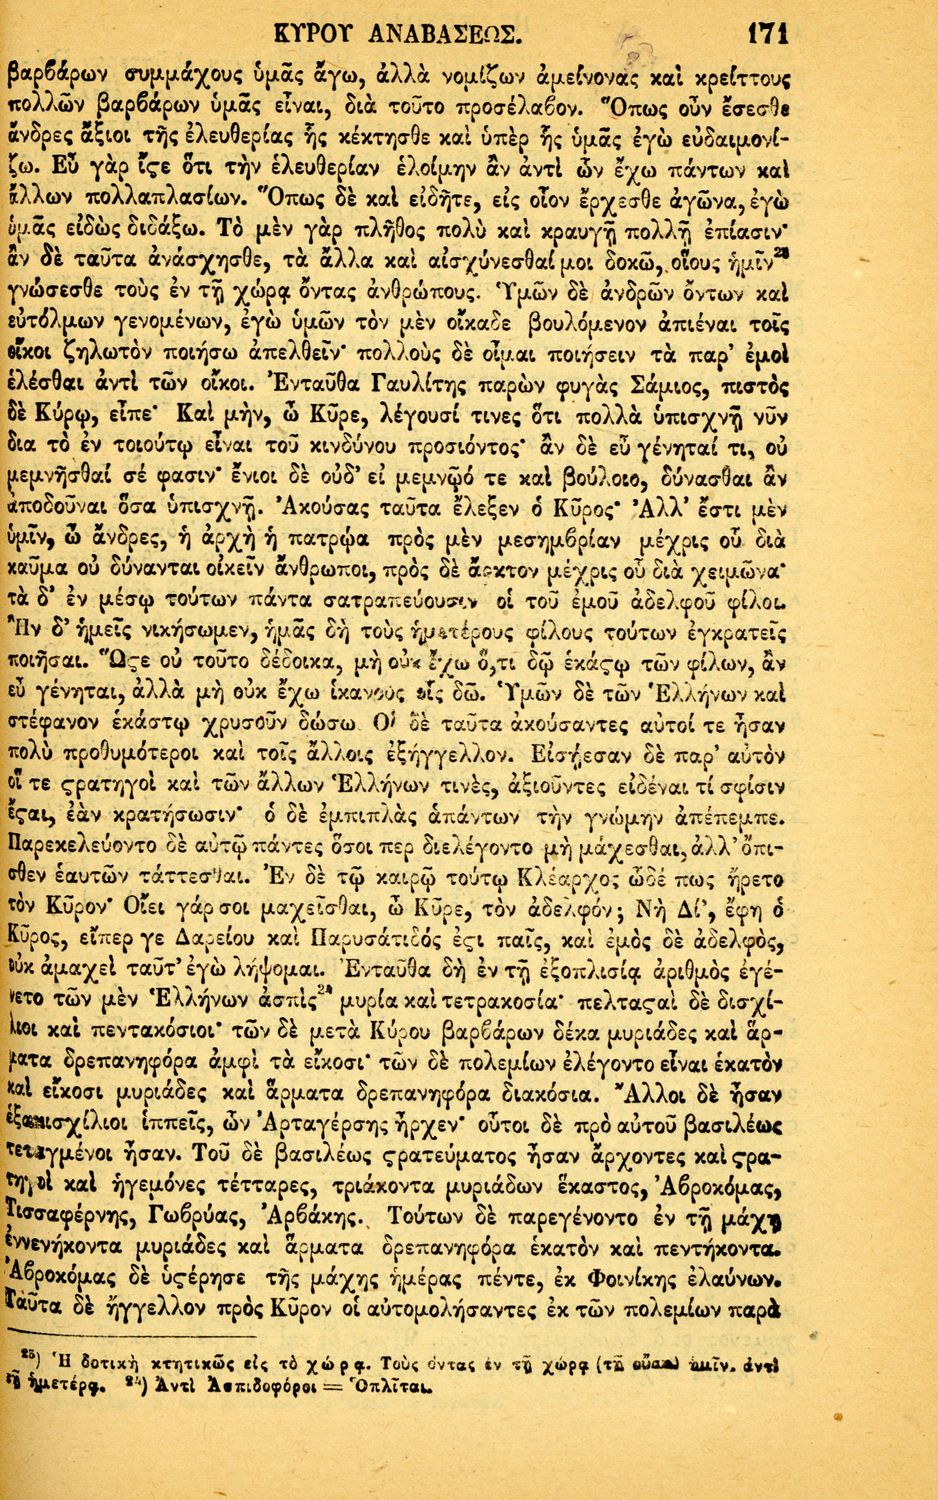 ΚΥΡΟΥ ΑΝΑΒΑΣΕΩΣ. 171
βαρβάρων συμμάχους ὑμᾶς ἄγω, ἀλλὰ νομίζων ἀμείνονας καὶ κρείττους
πολλῶν βαρβάρων ὑμᾶς εἶναι, διὰ τοῦτο προσέλαβον. Ὅπως οὖν ἔσεσθε
ἄνδρες ἄξιοι τῆς ἐλευθερίας ἧς κέκτησθε καὶ ὑπὲρ ἧς ὑμᾶς ἐγὼ εὐδαιμονί-
ζω. Εὖ γὰρ ἴϛε ὅτι τὴν ἐλευθερίαν ἑλοίμην ἂν ἀντὶ ὧν ἔχω πάντων καὶ
ἄλλων πολλαπλασίων. Ὅπως δὲ καὶ εἰδῆτε, εἰς οἷον ἔρχεσθε ἀγῶνα, ἐγὼ
ὑμᾶς εἰδὼς διδάξω. Τὸ μὲν γὰρ πλῆθος πολὺ καὶ κραυγῇ πολλῇ ἐπίασιν·
ἂν δὲ ταῦτα ἀνάσχησθε, τὰ ἄλλα καὶ αἰσχύνεσθαί μοι δοκῶ, οἵους ἡμῖν²³
γνώσεσθε τοὺς ἐν τῇ χώρᾳ ὄντας ἀνθρώπους. Ὑμῶν δὲ ἀνδρῶν ὄντων καὶ
εὐτόλμων γενομένων, ἐγὼ ὑμῶν τὸν μὲν οἴκαδε βουλόμενον ἀπιέναι τοῖς
οἴκοι ζηλωτὸν ποιήσω ἀπελθεῖν· πολλοὺς δὲ οἶμαι ποιήσειν τὰ παρ' ἐμοὶ
ἑλέσθαι ἀντὶ τῶν οἴκοι. Ἐνταῦθα Γαυλίτης παρὼν φυγὰς Σάμιος, πιστὸς
δὲ Κύρῳ, εἶπε· Καὶ μὴν, ὦ Κῦρε, λέγουσί τινες ὅτι πολλὰ ὑπισχνῇ νῦν
δια τὸ ἐν τοιούτῳ εἶναι τοῦ κινδύνου προσιόντος· ἂν δὲ εὖ γένηταί τι, οὐ
μεμνῆσθαί σέ φασιν· ἔνιοι δὲ οὐδ' εἰ μεμνῷό τε καὶ βούλοιο, δύνασθαι ἂν
ἀποδοῦναι ὅσα ὑπισχνῇ. Ἀκούσας ταῦτα ἔλεξεν ὁ Κῦρος· Ἀλλ' ἔστι μὲν
ὑμῖν, ὦ ἄνδρες, ἡ ἀρχὴ ἡ πατρῴα πρὸς μὲν μεσημβρίαν μέχρις οὗ διὰ
καῦμα οὐ δύνανται οἰκεῖν ἄνθρωποι, πρὸς δὲ ἄρκτον μέχρις οὗ διὰ χειμῶνα·
τὰ δ' ἐν μέσῳ τούτων πάντα σατραπεύουσιν οἱ τοῦ ἐμοῦ ἀδελφοῦ φίλοι.
Ἢν δ' ἡμεῖς νικήσωμεν, ἡμᾶς δὴ τοὺς ἡμετέρους φίλους τούτων ἐγκρατεῖς
ποιῆσαι. Ὥϛε οὐ τοῦτο δέδοικα, μὴ οὐκ ἔχω ὅ,τι δῷ ἑκάϛῳ τῶν φίλων, ἂν
εὖ γένηται, ἀλλὰ μὴ οὐκ ἔχω ἱκανοὺς οἷς δῶ. Ὑμῶν δὲ τῶν Ἑλλήνων καὶ
στέφανον ἑκάστῳ χρυσοῦν δώσω. Οἱ δὲ ταῦτα ἀκούσαντες αὐτοί τε ἦσαν
πολὺ προθυμότεροι καὶ τοῖς ἄλλοις ἐξήγγελλον. Εἰσῄεσαν δὲ παρ' αὐτὸν
οἵ τε ϛρατηγοὶ καὶ τῶν ἄλλων Ἑλλήνων τινὲς, ἀξιοῦντες εἰδέναι τί σφίσιν
ἔϛαι, ἐὰν κρατήσωσιν· ὁ δὲ ἐμπιπλὰς ἁπάντων τὴν γνώμην ἀπέπεμπε.
Παρεκελεύοντο δὲ αὐτῷ πάντες ὅσοι περ διελέγοντο μὴ μάχεσθαι, ἀλλ' ὄπι-
σθεν ἑαυτῶν τάττεσθαι. Ἐν δὲ τῷ καιρῷ τούτῳ Κλέαρχος ὧδέ πως ἤρετο
τὸν Κῦρον· Οἴει γάρ σοι μαχεῖσθαι, ὦ Κῦρε, τὸν ἀδελφόν; Νὴ Δί', ἔφη ὁ
Κῦρος, εἴπερ γε Δαρείου καὶ Παρυσάτιδός ἐϛι παῖς, καὶ ἐμὸς δὲ ἀδελφὸς,
οὐκ ἀμαχεὶ ταῦτ' ἐγὼ λήψομαι. Ἐνταῦθα δὴ ἐν τῇ ἐξοπλισίᾳ ἀριθμὸς ἐγέ-
νετο τῶν μὲν Ἑλλήνων ἀσπὶς²⁴ μυρία καὶ τετρακοσία· πελταϛαὶ δὲ δισχί-
λιοι καὶ πεντακόσιοι· τῶν δὲ μετὰ Κύρου βαρβάρων δέκα μυριάδες καὶ ἅρ-
ματα δρεπανηφόρα ἀμφὶ τὰ εἴκοσι· τῶν δὲ πολεμίων ἐλέγοντο εἶναι ἑκατὸν
καὶ εἴκοσι μυριάδες καὶ ἅρματα δρεπανηφόρα διακόσια. Ἄλλοι δὲ ἦσαν
ἑξακισχίλιοι ἱππεῖς, ὧν Ἀρταγέρσης ἦρχεν· οὗτοι δὲ πρὸ αὐτοῦ βασιλέως
τεταγμένοι ἦσαν. Τοῦ δὲ βασιλέως ϛρατεύματος ἦσαν ἄρχοντες καὶ ϛρα-
τηγοὶ καὶ ἡγεμόνες τέτταρες, τριάκοντα μυριάδων ἕκαστος, Ἀβροκόμας,
Τισσαφέρνης, Γωβρύας, Ἀρβάκης. Τούτων δὲ παρεγένοντο ἐν τῇ μάχῃ
ἐννενήκοντα μυριάδες καὶ ἅρματα δρεπανηφόρα ἑκατὸν καὶ πεντήκοντα.
Ἀβροκόμας δὲ ὑϛέρησε τῆς μάχης ἡμέρας πέντε, ἐκ Φοινίκης ἐλαύνων.
Ταῦτα δὲ ἤγγελλον πρὸς Κῦρον οἱ αὐτομολήσαντες ἐκ τῶν πολεμίων παρὰ
²³) Ἡ δοτικὴ κτητικῶς εἰς τὸ χώρᾳ. Τοὺς ὄντας ἐν τῇ χώρᾳ (τῇ οὔσῃ) ἡμῖν. ἀντὶ
τῇ ἡμετέρᾳ. ²⁴) Ἀντὶ Ἀσπιδοφόροι = Ὁπλῖται.